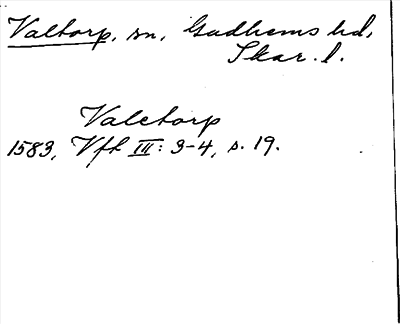 Valtorp, sn, Gudhems hd,
Skar. l.
Valetorp
1583, Vft III: 3-4, s. 19.